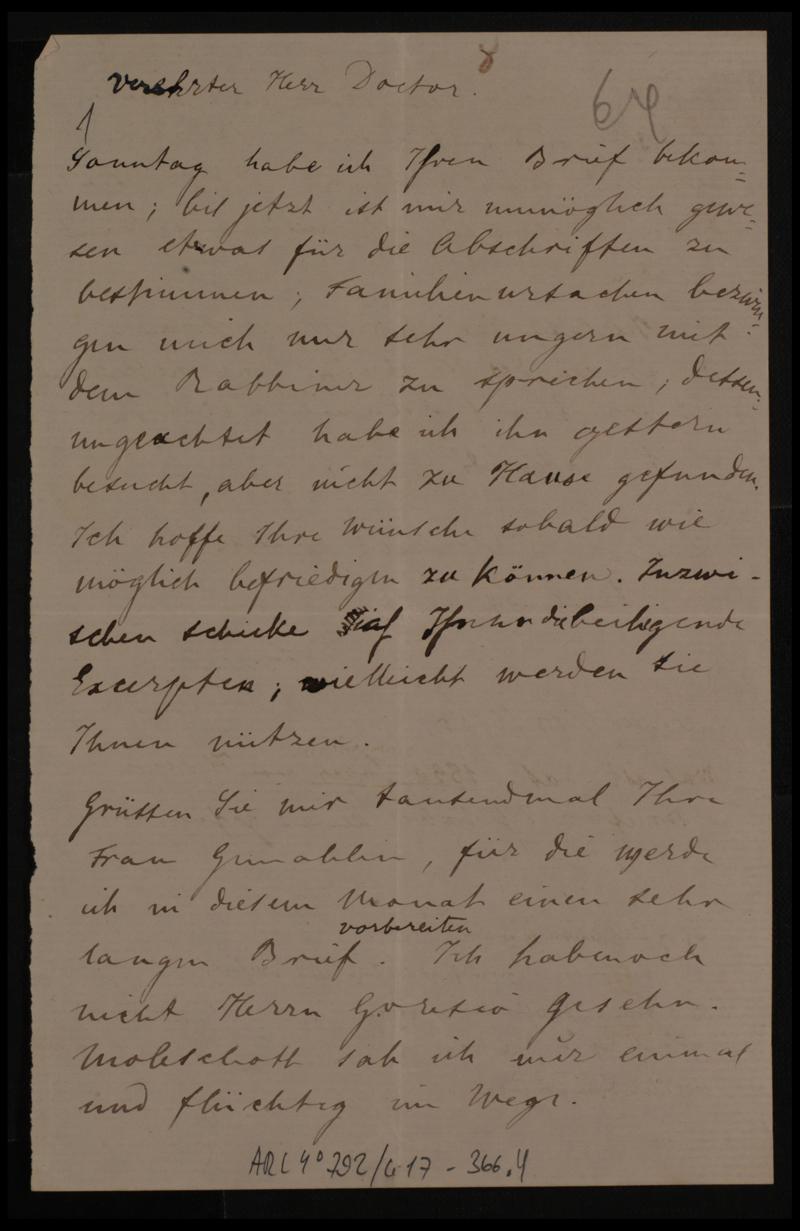 verehrter Herr Doctor.
64
Sonntag habe ich Ihren Brief bekom=
men; bis jetzt ist mir unmöglich gewe=
sen etwas für die Abschriften zu
bestimmen; Familienursachen bezwin=
gen mich nur sehr ungern mit
dem Rabbiner zu sprechen; dessen=
ungeachtet habe ich ihn gestern
besucht, aber nicht zu Hause gefunden.
Ich hoffe Ihre Wünsche sobald wie
möglich befriedigen zu können. Inzwi-
schen schicke ich Ihnen die beiligende
Excerpten; vielleicht werden sie
Ihnen nützen.
Grüssen Sie mir tausendmal Ihre
Frau Gemahlin, für die werde
ich in diesem Monat einen sehr
vorbereiten
langen Brief. Ich habe noch
nicht Herrn Goresio gesehn.
Moleschott sah ich nur einmal
und flüchtig im Wege.
ARC 4° 792/G 17 - 366.4